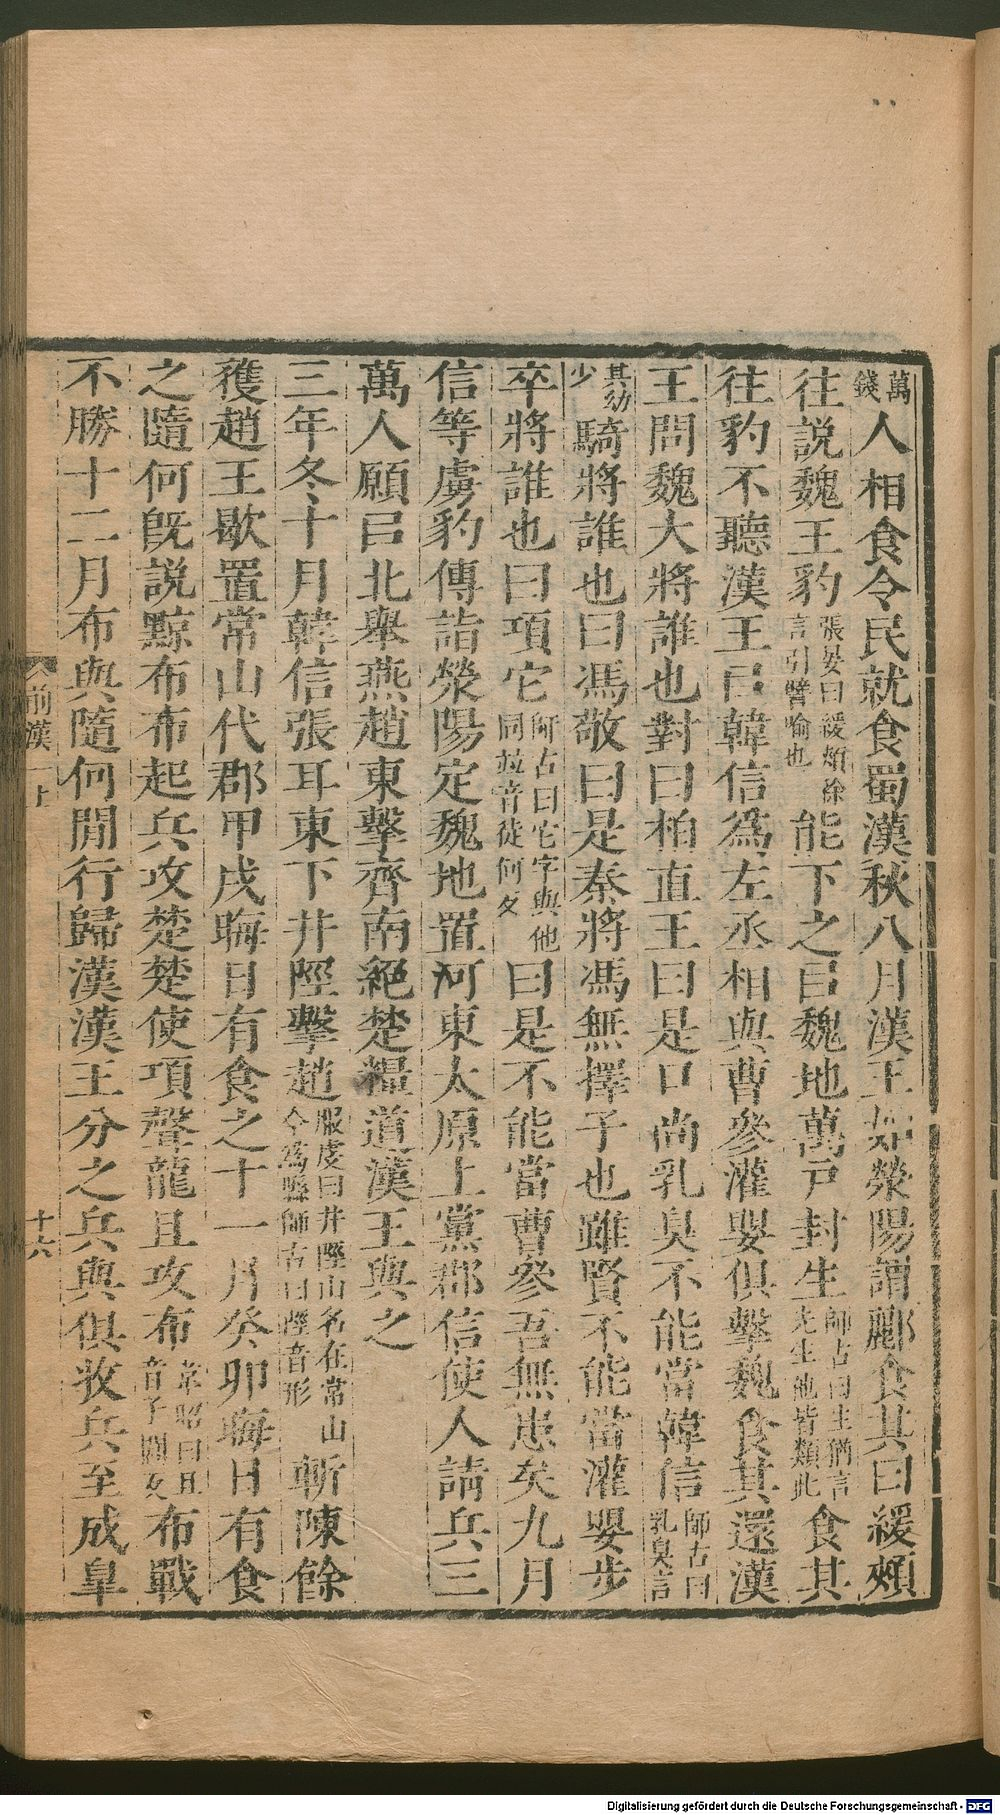 萬錢人相食令民就食蜀漢秋八月漢王如滎陽謂酈食其曰緩頰
往說魏王豹張晏曰緩頰徐言引譬喻也能下之㠯魏地萬戶封生師古曰生猶言先生他皆類此食其
往豹不聽漢王㠯韓信爲左丞相與曹參灌嬰俱擊魏食其還漢
王問魏大將誰也對曰柏直王曰是口尚乳臭不能當韓信師古曰乳臭言
其幼少騎將誰也曰馮敬曰是秦將馮無擇子也雖賢不能當灌嬰步
卒將誰也曰項它師古曰它字與他同並音徒何反曰是不能當曹參吾無患矣九月
信等虜豹傳詣滎陽定魏地置河東太原上黨郡信使人請兵三
萬人願㠯北舉燕趙東擊齊南絕楚糧道漢王與之
三年冬十月韓信張耳東下井陘擊趙服虔曰井陘山名在常山今爲縣師古曰陘音形斬陳餘
獲趙王歇置常山代郡甲戌晦日有食之十一月癸卯晦日有食
之隨何旣說黥布布起兵攻楚楚使項聲龍且攻布韋昭曰且音子閭反布戰
不勝十二月布與隨何閒行歸漢漢王分之兵與俱收兵至成皐
前漢一上
十六
Digitalisierung gefördert durch die Deutsche Forschungsgemeinschaft - DFG